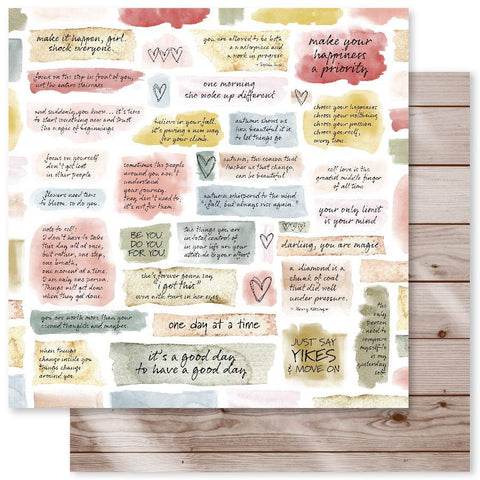 make it happen, girl.
shock everyone.
you are allowed to be both
a masterpiece and
a work in progress
make your
happiness
a priority
focus on the step in front of you,
not the entire staircase
one morning
she woke up different
and suddenly, you know... it's time
to start something new and trust
the magic of beginnings
believe in your fall.
it's paving a new way
for your climb.
autumn shows us
how beautiful it is
to let things go
choose your happiness
choose your wellbeing
choose your passion
choose yourself,
every time.
focus on yourself
don't get lost
in other people
sometimes the people
around you won't
understand
your journey.
they don't need to,
it's not for them.
autumn, the season that
teaches us that change,
can be beautiful
self love is the
greatest middle finger
of all time
flowers need time
to bloom. so do you.
autumn whispered to the wind
"i fall, but always rise again."
your only limit
is your mind
note to self:
I don't have to take
this day all at once,
but rather, one step,
one breath,
one moment at a time.
I am only one person.
Things will get done
when they get done.
BE YOU.
DO YOU.
FOR YOU.
the things you are
in total control of
in your life are your
attitude & your effort
darling, you are magic
she's forever gonna say
"i got this"
even with tears in her eyes.
a diamond is a
chunk of coal
that did well
under pressure.
the
only
person
I need to
compare
myself to
is my
yesterday
self
you are worth more than your
second thoughts and maybes.
one day at a time
when things
change inside you
things change
around you.
it's a good day
to have a good day
JUST SAY
YIKES
& MOVE ON